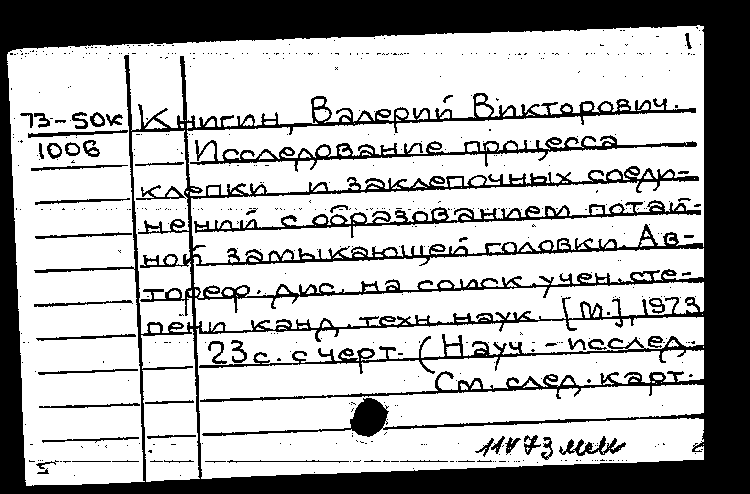 1
73-50к Книгин, Валерий Викторович.
1006 Исследование процесса
клепки и заклепочных соеди-
нений с образованием потай-
ной замыкающей головки. Ав-
тореф. дис. на соиск. учен. сте-
пени канд. техн. наук. [М.], 1973
23 с. с черт. (Науч.-исслед.
См. след. карт.